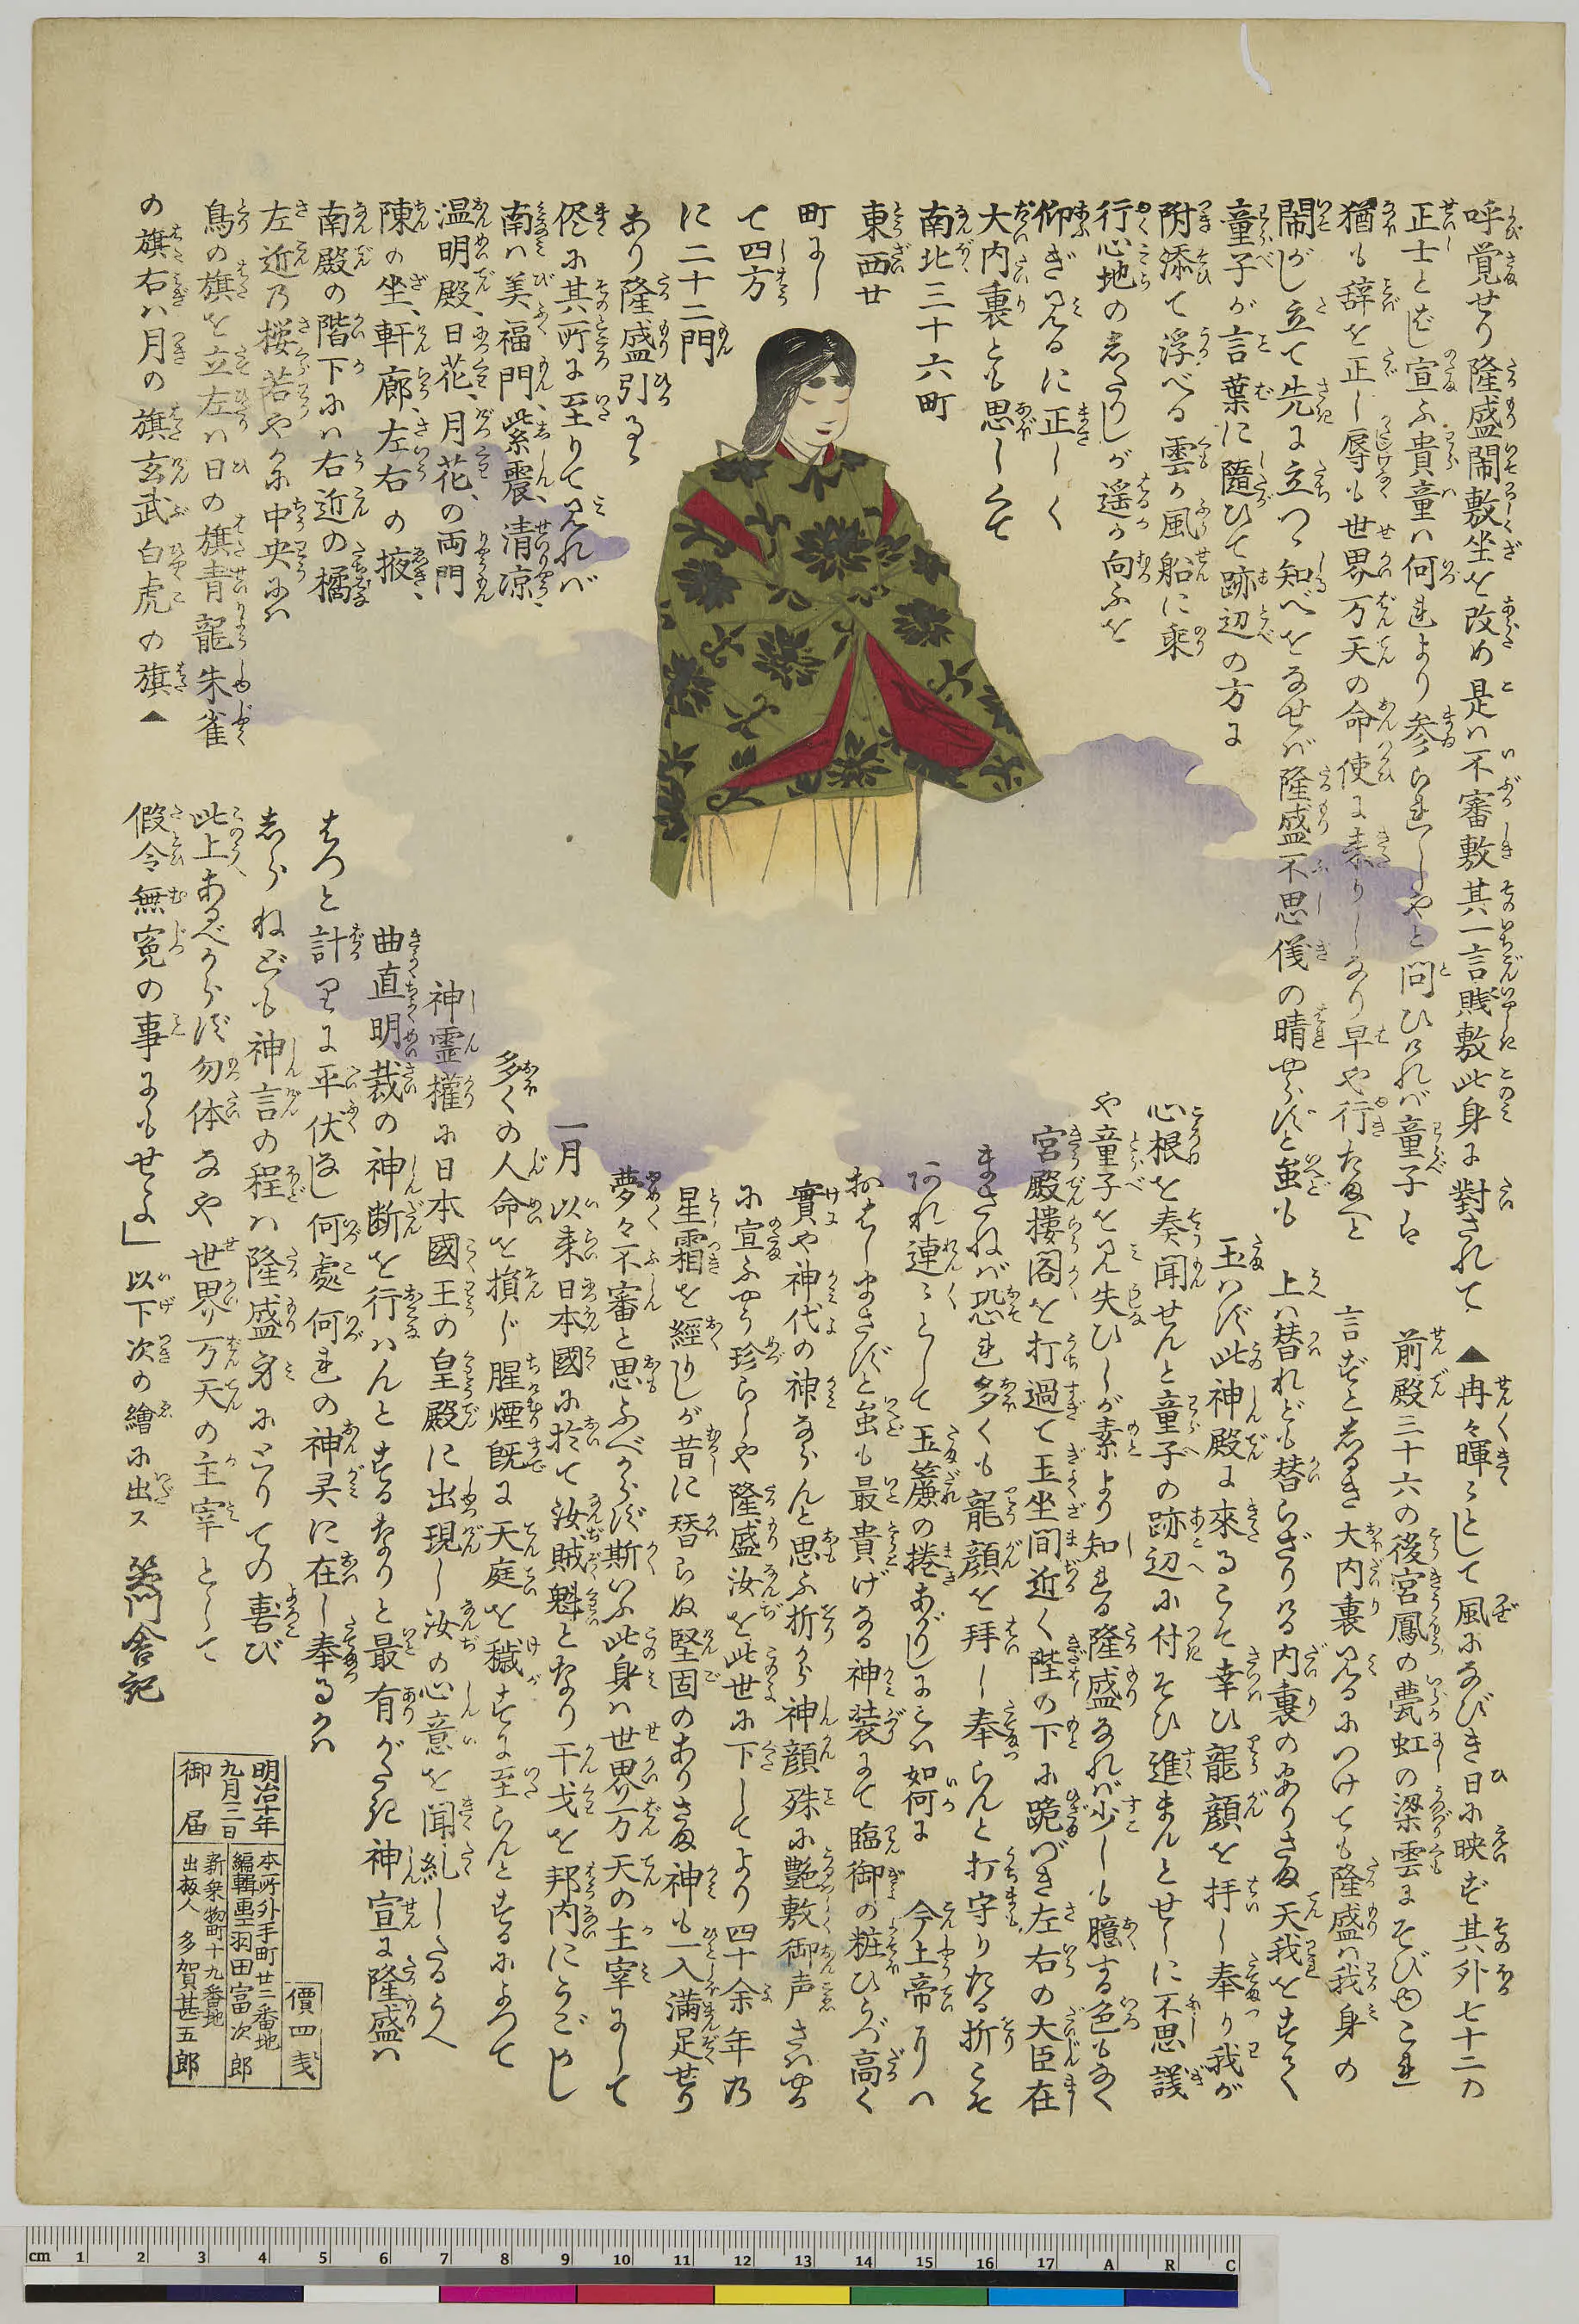 呼覚せり隆盛鬧敷坐を改め是ハ不審敷其一言賎敷此身に對されて
正士と宣ふ貴童ハ何れより参られしやと問ひけれバ童子ハ
猶も辞を正し辱も世界万天の命使に来りしなり早や行たまへと
鬧がし立て先に立つゝ知べをなせバ隆盛不思儀の晴やらずと雖も
童子が言葉に隨ひて跡辺の方に
附添て浮べる雲か風船に乗
行心地のしたりしが遥か向ふを
仰ぎ見るに正しく
大内裏とも思しくて
南北三十六町
東西廿
町にし
て四方
に二十二門
あり隆盛引るゝ
侭に其所に至りて見れバ
南ハ美福門、紫震、清凉、
温明殿、日花、月花、の両門
陳の坐、軒廊、左右の掖、
南殿の階下にハ右近の橘
左近乃桜若やかに中央にハ
鳥の旗を立左ハ日の旗青龍朱雀
の旗右ハ月の旗玄武白虎の旗▲
▲冉々暉々として風になびき日に映ず其外七十二の
前殿三十六の後宮鳳の甍虹の梁雲にそびゆこれ
言ずとしるき大内裏見るにつけても隆盛ハ我身の
上ハ替れども替らざりける内裏のありさま天我をすく
玉ハず此神殿に來るこそ幸ひ龍顔を拝し奉り我が
心根を奏聞せんと童子の跡辺に付そひ進まんとせしに不思議
や童子を見失ひしが素より知れる隆盛なれバ少しも臆する色もなく
宮殿樓阁を打過て玉坐間近く陛の下に跪づき左右の大臣在
まさねバ恐れ多くも龍顔を拝し奉らんと打守りたる折こそ
あれ連々として玉簾の捲あがりしにこハ如何に今上帝にハ
おはしまさずと雖も最貴げなる神装にて臨御の粧ひらづ高く
實や神代の神ならんと思ふ折から神顔殊に艶敷御声さハやか
に宣ふやう珍らしや隆盛汝を此世に下してより四十余年乃
星霜を經りしが昔に替らぬ堅固のありさま神も一入満足せり
夢々不審と思ふべからず斯いふ此身ハ世界万天の主宰にして
一月以来日本國に於て汝賊魁となり干戈を邦内にうごかし
多くの人命を損じ腥煙既に天庭を穢すに至らんとするによつて
神霊權に日本國王の皇殿に出現し汝の心意を聞糺したるうへ
曲直明裁の神断を行ハんとするなりと最有がたき神宣に隆盛ハ
はつと計りに平伏なし何處何れの神灵に在し奉るかハ
しらねども神言の程ハ隆盛身にとりての喜び
此上あるべからず勿体なや世界万天の主宰として
假令無寃の事にもせよ」以下次の繪に出ス 笑門舎記
價四戔
明治十年
九月三日
御届
本所外手町廿三番地
編輯画工羽田富次郎
新乗物町十九番地
出板人 多賀甚五郎
cm 1 2 3 4 5 6 7 8 9 10 11 12 13 14 15 16 17 A R C